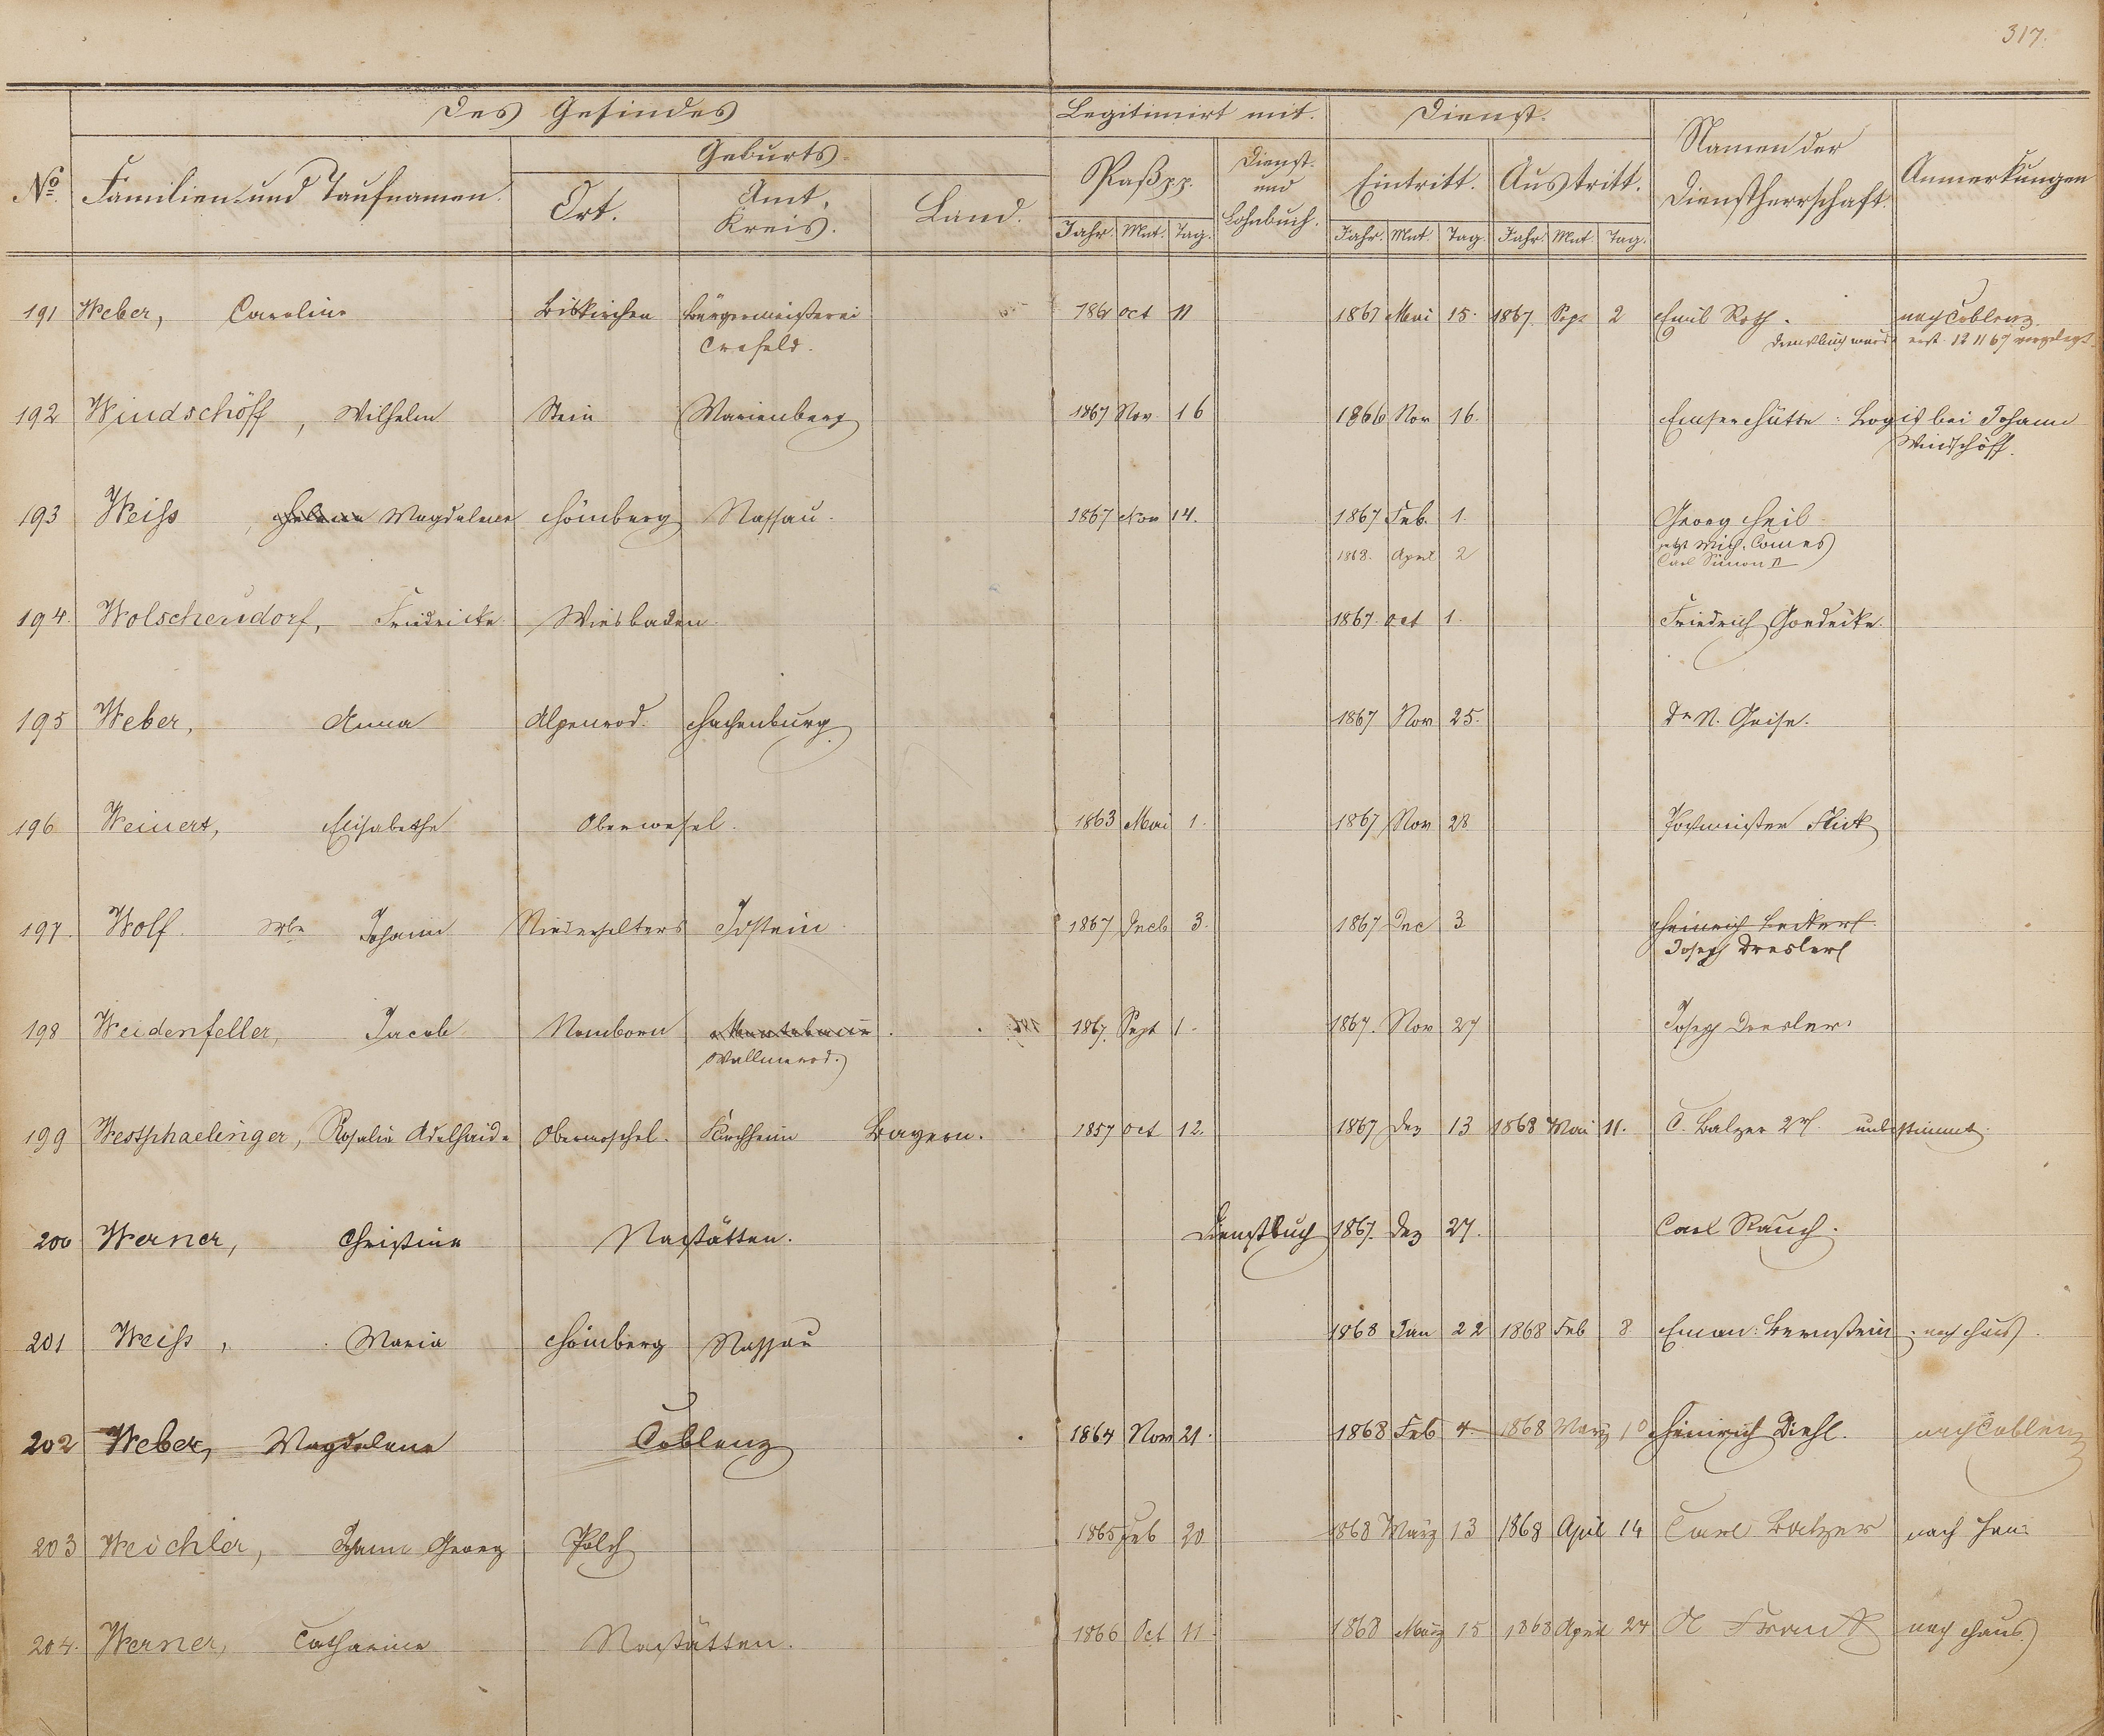 317.
Des Gesindes
Legitimirt mit.
Dienst.
Namen der
Dienstherrschaft.
Anmerkungen
No.
Familien und Taufnamen.
Geburts
Ort.
Amt,
Kreis.
Land.
Paß p.p.
Dienst-
und
Lohnbuch.
Eintritt.
Austritt.
Jahr. Mnt. Tag.
Jahr. Mnt. Tag. Jahr. Mnt. Tag.
191 Weber, Caroline Biskirchen Bürgermeisterei 186 Oct 11 1867 Mai 15. 1867. Sept 2 Emil Roth. nach Coblenz.
Crefeld. Dienstbuch wurde erst 12 11 67 vorgelegt.
192 Windschöff, Wilhelm Stein Marienberg 1867 Nov. 16 1866 Nov 16. Emserhütte: Logis bei Johann
Windschöff.
193 Weiss, Helene Magdalene Hömberg Nassau. 1867 Nov 14. 1867 Feb. 1. Georg Heil
1868. April 2 jetzt Mich. Comes
Carl Simon II
194. Wolschendorf, Friedricke Wiesbaden. 1867. Oct 1. Friedrich Goedecke.
195 Weber, Anna Alpenrod. Hachenburg 1867 Nov 25. Dr N. Geise.
196 Weinert, Elisabethe Oberwesel. 1863 Mai 1. 1867 Nov 28 Postmeister Flick
197. Wolf. Johann Niederselters Idstein. 1867 Decb 3. 1867 Dec 3 Heinrich Beckers.
Joseph Dresler
198 Weidenfeller, Jacob Nomborn Montabaur. 1867. Sept 1. 1867. Nov 27 Joseph Dresler.
Wallmerod.
199 Westphaelinger, Rosalie Adelhaide Obermoschel. Kirchheim Bayern. 1857 Oct 12. 1867 Dez 13 1868 Mai 11. C. Balzer 2r. unbestimmt.
200 Werner, Christine Nastätten. Dienstbuch 1867. Dez 27. Carl Rauch.
201 Weiss, Maria Hömberg Nassau 1868 Jan 22 1868 Feb 8 Eman: Bernstein. nach Haus.
202 Weber, Magdalena Coblenz 1864 Nov 21. 1868 Feb 4. 1868 März 10 Heinrich Diehl. nach Coblenz
203 Weichler, Johann Georg Polch 1865 Feb 20 1868 März 13 1868 April 14 Carl Balzer nach Haus
204. Werner, Catharine Nastätten. 1866 Oct 11. 1868 März 15 1868 April 24 nach Haus.